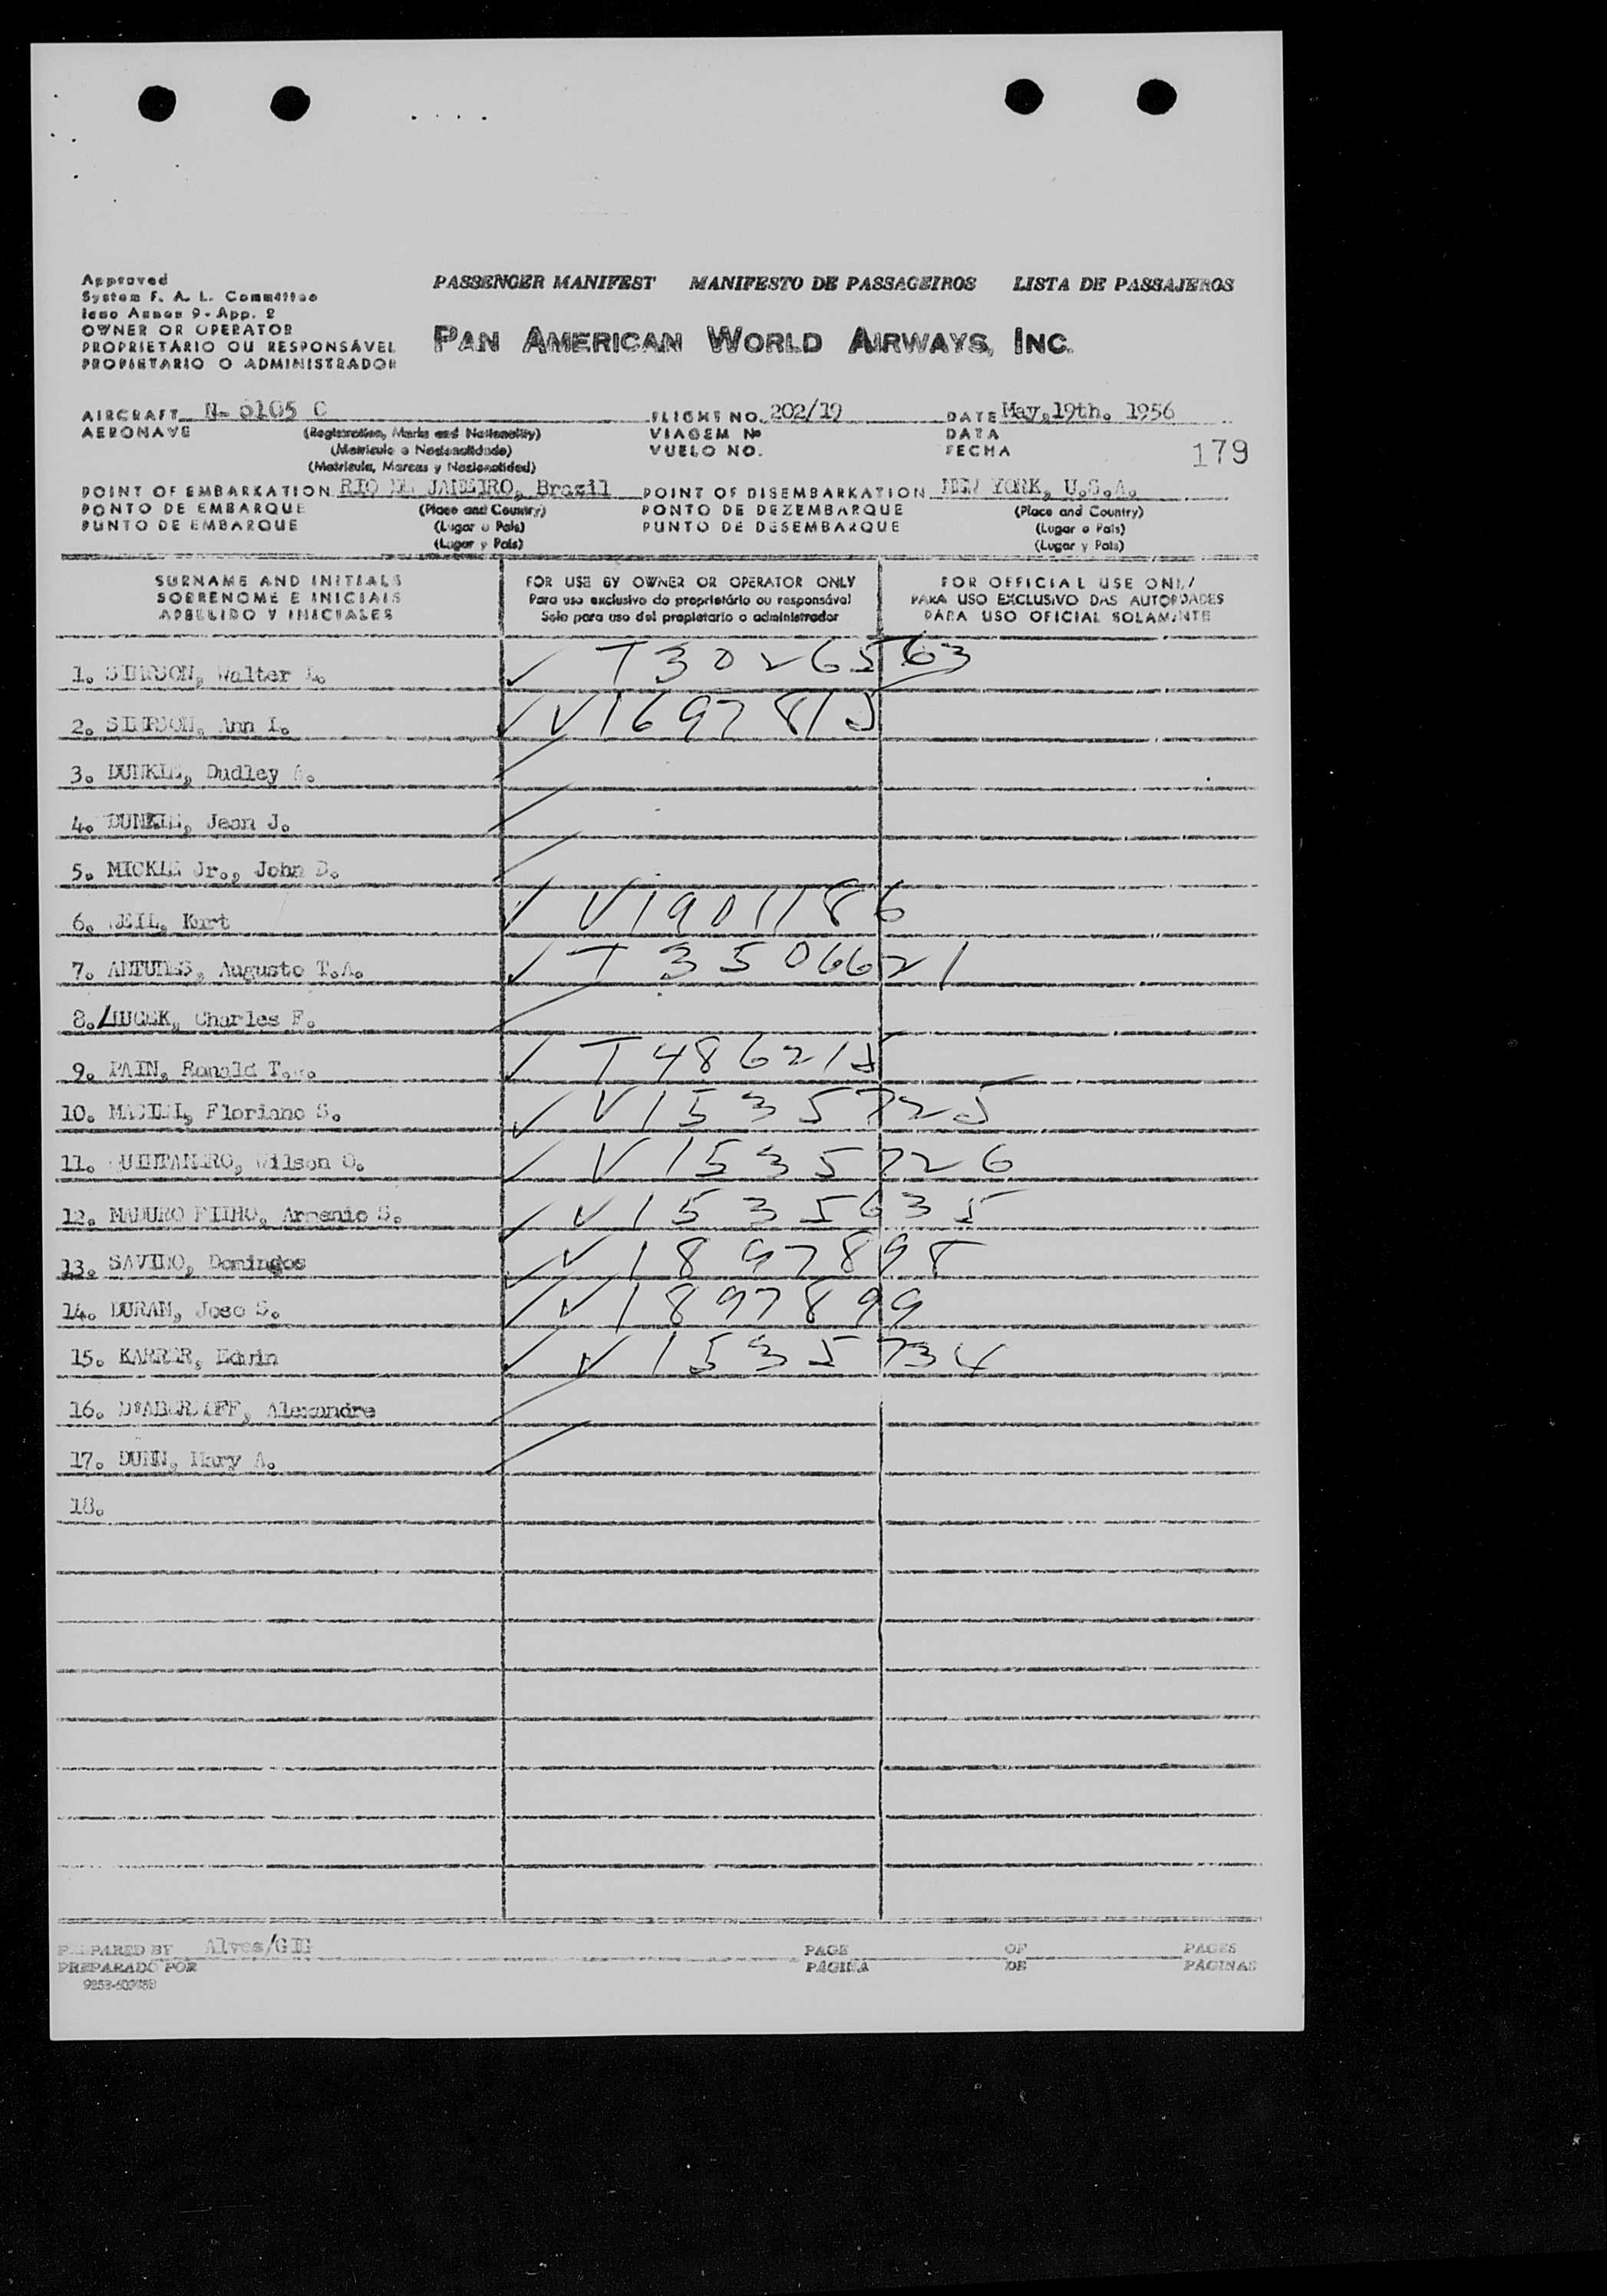 Approved
System F. A. L. Committee
Icao Annex 9 - App. 2
OWNER OR OPERATOR
PROPRIETÁRIO OU RESPONSÁVEL
PROPIETARIO O ADMINISTRADOR
PASSENGER MANIFEST MANIFESTO DE PASSAGEIROS LISTA DE PASSAJEROS
PAN AMERICAN WORLD AIRWAYS, INC.
AIRCRAFT N- 5105 C FLIGHT NO. 202/19 DATE May,19th. 1956
AERONAVE (Registration, Marks and Nationality) VIAGEM Nº DATA
(Matrícula e Nacionalidade) VUELO NO. FECHA 179
(Matrícula, Marcas y Nacionalidad)
POINT OF EMBARKATION RIO DE JANEIRO, Brazil POINT OF DISEMBARKATION NEW YORK, U.S.A.
PONTO DE EMBARQUE (Place and Country) PONTO DE DEZEMBARQUE (Place and Country)
PUNTO DE EMBARQUE (Lugar o País) PUNTO DE DESEMBARQUE (Lugar o País)
(Lugar y País) (Lugar y País)
SURNAME AND INITIALS FOR USE BY OWNER OR OPERATOR ONLY FOR OFFICIAL USE ONLY
SOBRENOME E INICIAIS Para uso exclusivo do proprietário ou responsável PARA USO EXCLUSIVO DAS AUTORIDADES
APELLIDO Y INICIALES Solo para uso del propietario o administrador PARA USO OFICIAL SOLAMENTE
1. SIMPSON, Walter ✓ T3026563
2. SIMPSON, Ann I. ✓ V1697815
3. DUNKLE, Dudley
4. DUNKLE, Jean J.
5. MICKLE Jr., John D.
6. Kurt ✓ V1901186
7. ANTUNES, Augusto T.A. ✓ T3506621
8. Charles F.
9. PAIN, Ronald T. ✓ T486215
10. MACIEL, Floriano S. ✓ V1535725
11. QUINTANEIRO, Wilson O. ✓ V1535726
12. MADURO FILHO, Arsenio S. ✓ V1535635
13. SAVINO, Domingos ✓ V1897898
14. DURAN, Jose S. ✓ V1897899
15. KARRER, Edwin ✓ V1535734
16. Alexandre
17. DUNN, Mary A.
18.
PREPARED BY Alves/GIG PAGE OF PAGES
PREPARADO POR PÁGINA DE PÁGINAS